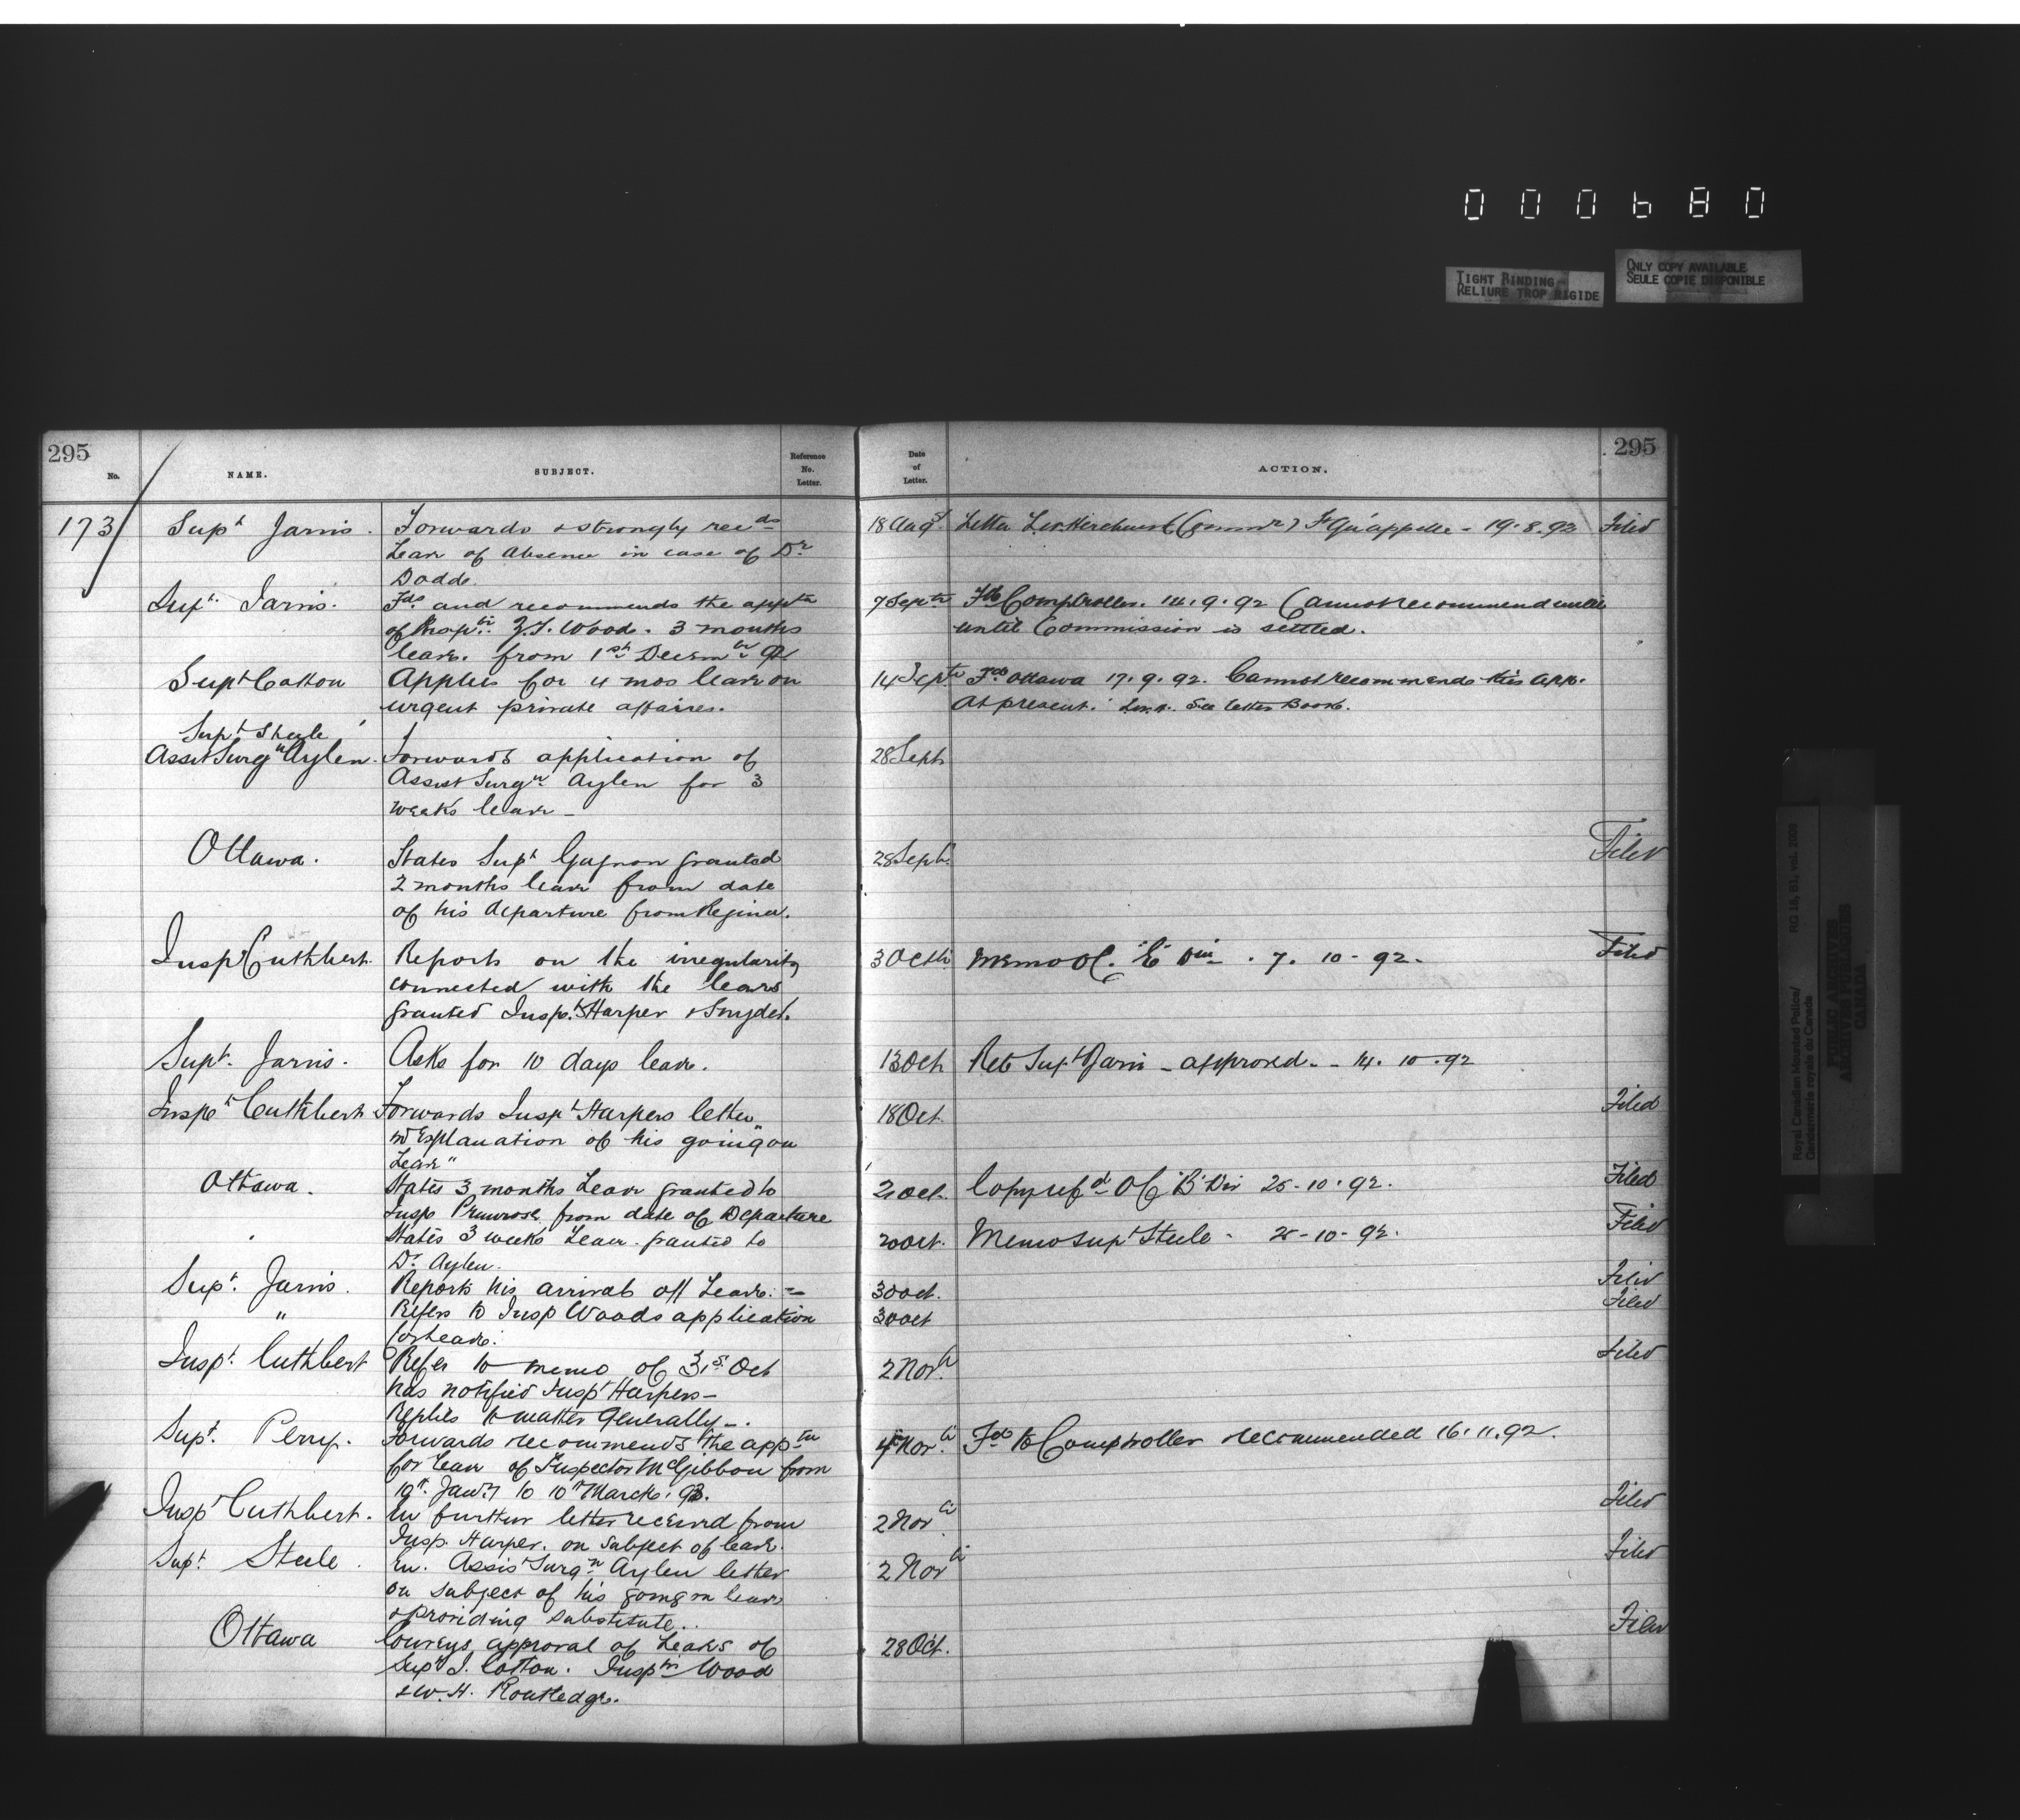 000680
TIGHT BINDING
RELIURE TROP RIGIDE
ONLY COPY AVAILABLE
SEULE COPIE DISPONIBLE
295
No. NAME. SUBJECT. Reference No. Letter.
Date of Letter. ACTION. 295
173 Supt Jarvis. Forwards & strongly recds 18 Augt Letter Ft Qu'appelle - 19.8.92 Filed
Leave of absence in case of Dr
Dodd.
Supt. Jarvis. Fds and recommends the apptn 7 Septr Fd Comptroller. 14.9.92 Cannot recommend until
of Inspr. Z.T. Wood. 3 months until Commission is settled.
leave. from 1st Decembr 92
Supt Cotton Applies for 4 mos leave on 14 Septr Fd Ottawa 17.9.92. Cannot recommend this app.
urgent private affairs. At present. See letter Book.
Supt Steele
Asst Surgn Aylen. Forwards application of 28 Sept
Assist Surgn Aylen for 3
weeks leave -
Ottawa. States Supt Gagnon granted 28 Sept. Filed
2 months leave from date
of his departure from Regina.
Inspr Cuthbert. Reports on the irregularity 3 Octr Memo OC. "E" Divn. 7. 10 - 92. Filed
connected with the leave
granted Inspts Harper & Snyder.
Supt. Jarvis. Asks for 10 days leave. 13 Oct Retd Supt Jarvis - approved. - 14. 10. 92
Inspt Cuthbert Forwards Inspt Harpers letter 18 Oct. Filed
"in Explanation of his going on
Leave"
Ottawa. States 3 months Leave granted to 21 Oct. Copy refd OC "B" Div 25-10-92. Filed
Insp Primrose from date of Departure
States 3 weeks Leave granted to 20 Oct. Memo Supt Steele - 25-10-92. Filed
Dr Aylen.
Supt. Jarvis. Reports his arrival off Leave. 30 Oct. Filed
" Refers to Insp Woods application 30 Oct Filed
for Leave.
Inspt. Cuthbert Refer to memo of 31st Oct 2 Nov. Filed
has notified Inspt Harper -
Replies to matter Generally -.
Supt. Perry. Forwards recommends the apptn 4 Nov. Fd to Comptroller recommended 16.11.92.
for leave of Inspector McGibbon from
10th Jany to 10th March. 93.
Inspt Cuthbert. En further letter received from 2 Nov. Filed
Insp. Harper. on subject of leave.
Supt Steele. En. Assist Surgn Aylen letter 2 Nov Filed
on subject of his going on leave
& providing substitute..
Ottawa Conveys approval of Leaves of 28 Oct. Filed
Supt J. Cotton. Insptrs Wood
& W. H. Routledge.
Royal Canadian Mounted Police/
Gendarmerie royale du Canada
RG 18, B1, vol.
PUBLIC ARCHIVES
ARCHIVES PUBLIQUES
CANADA